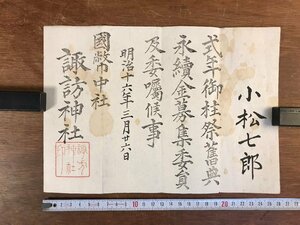 小松七郎
式年御柱祭舊典
永續金募集委員
及委囑候事
明治十六年三月廿六日
國幣中社
諏訪神社